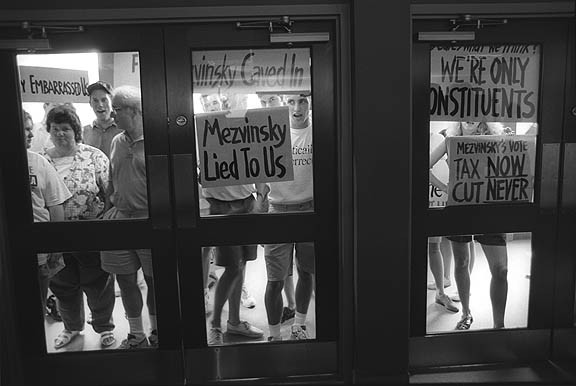 EMBARRASSED US
vinsky Caved In
Mezvinsky
Lied To Us
WE'RE ONLY
ONSTITUENTS
MEZVINSKY'S VOTE
TAX NOW
CUT NEVER